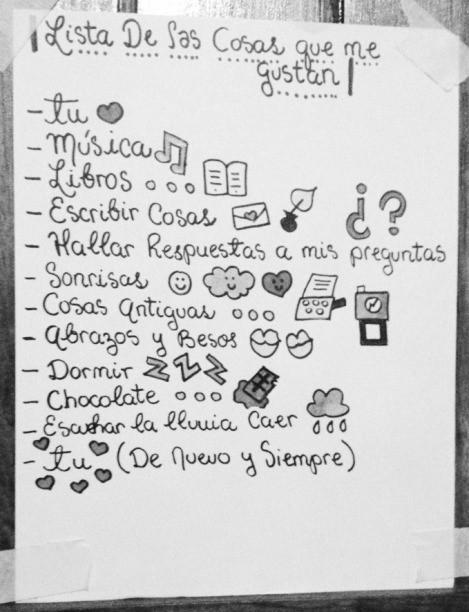 Lista De las Cosas que me
gustan
- tu
- Música
- Libros
- Escribir Cosas
- Hallar Respuestas a mis preguntas
¿?
- Sonrisas
- Cosas Antiguas
- Abrazos y Besos
- Dormir ZZZ
- Chocolate
- Escuchar la lluvia Caer
- tu (De Nuevo y Siempre)